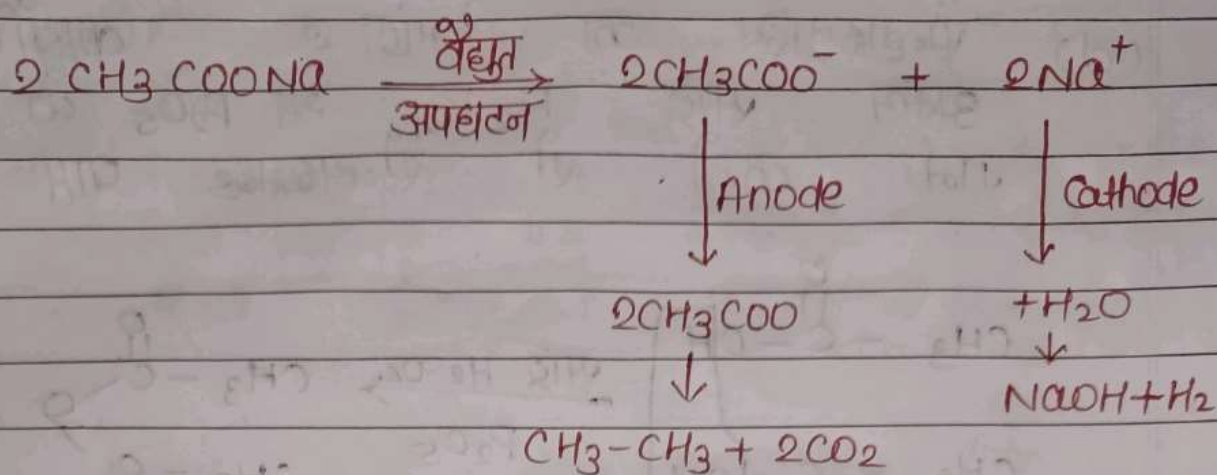 2 CH3COONa वैद्युत अपघटन → 2CH3COO⁻ + 2Na⁺
↓ Anode ↓ Cathode
2CH3COO +H2O
↓ ↓
NaOH+H2
CH3-CH3 + 2CO2